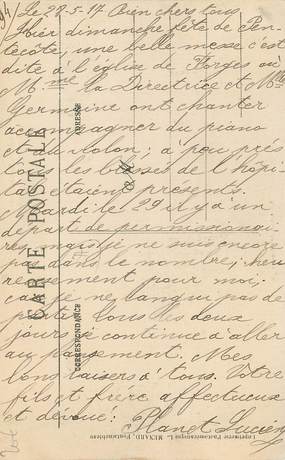 Le 28-5-17 Bien chers tous
Hier dimanche fête de Pen-
tecôte, une belle messe c'est
dite à l'église de Forges où
Mme la Directrice et Mlle
Germaine ont chanter
accompagner du piano
et du violon; à peu près
tous les blessés de l'hôpi-
tal étaient présents.
Mardi le 29 il y a un
départ de permissionai-
res mais je ne suis encore
pas dans le nombre, heu-
reusement pour moi,
car je ne langui pas de
partir tous les deux
jours je continue d'aller
au pansement. Mes
bons baisers à tous. Votre
fils et frère affectueux
et dévoué. Planet Lucien
CARTE POSTALE
ADRESSE
CORRESPONDANCE
Imprimerie Photomécanique L. MENARD, Fontainebleau